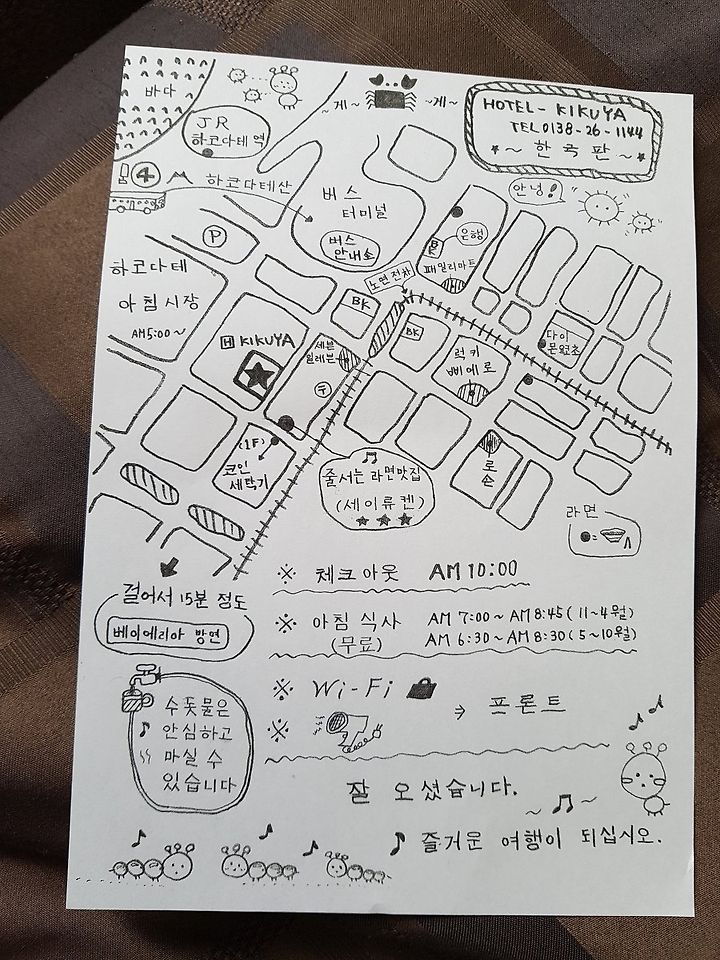 바다
JR
하코다테역
~게~
~게~
HOTEL- KIKUYA
TEL 0138-26-1144
~ 한국판 ~
4
하코다테산
버스
터미널
버스
안내소
안녕!
P
BK
은행
패밀리마트
노면전차
하코다테
아침시장
AM5:00~
H KIKUYA
BK
BK
세븐
일레븐
럭키
삐에로
〒
(1F)
코인
세탁기
줄서는 라면맛집
(세이류켄)
로손
라면
걸어서 15분 정도
베이에리아 방면
※ 체크아웃 AM 10:00
※ 아침 식사 AM 7:00~AM 8:45(11~4월)
(무료) AM 6:30~AM 8:30(5~10월)
※ Wi-Fi
※
⇒ 프론트
수돗물은
안심하고
마실 수
있습니다
잘 오셨습니다.
즐거운 여행이 되십시오.